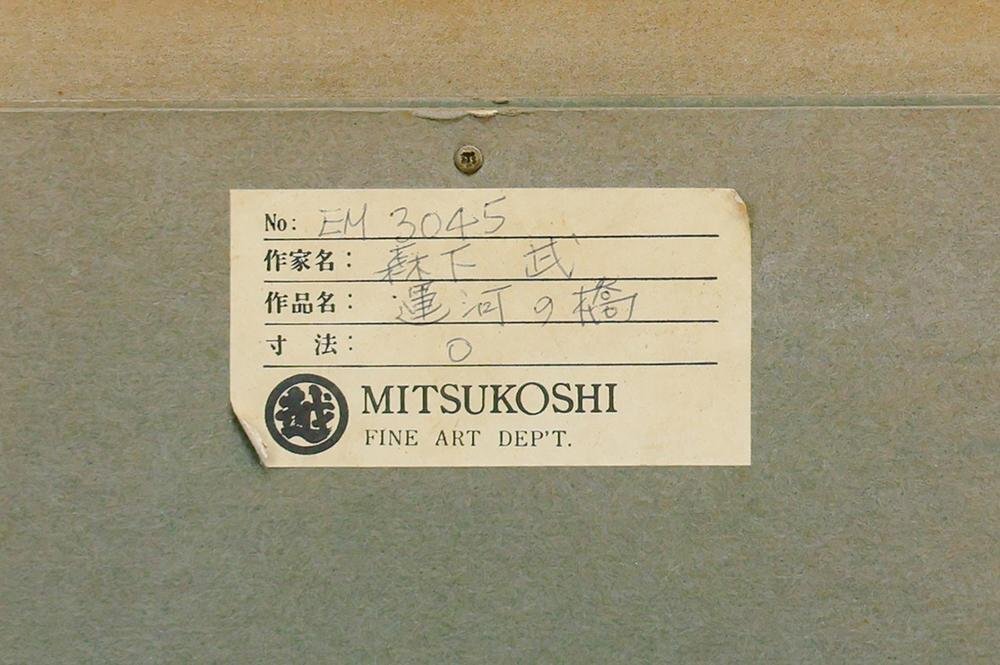 No: EM 3045
作家名: 森下 武
作品名: 運河の橋
寸 法: 0
越
MITSUKOSHI
FINE ART DEP'T.